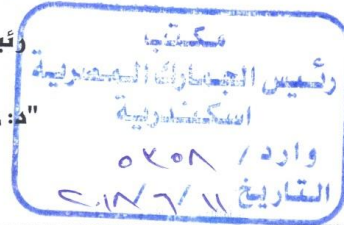 مكتب
رئيس الجمارك المصرية
اسكندرية
"د.
وارد / ٥٧٥٨
التاريخ ١١ / ٦ / ٢٠١٨